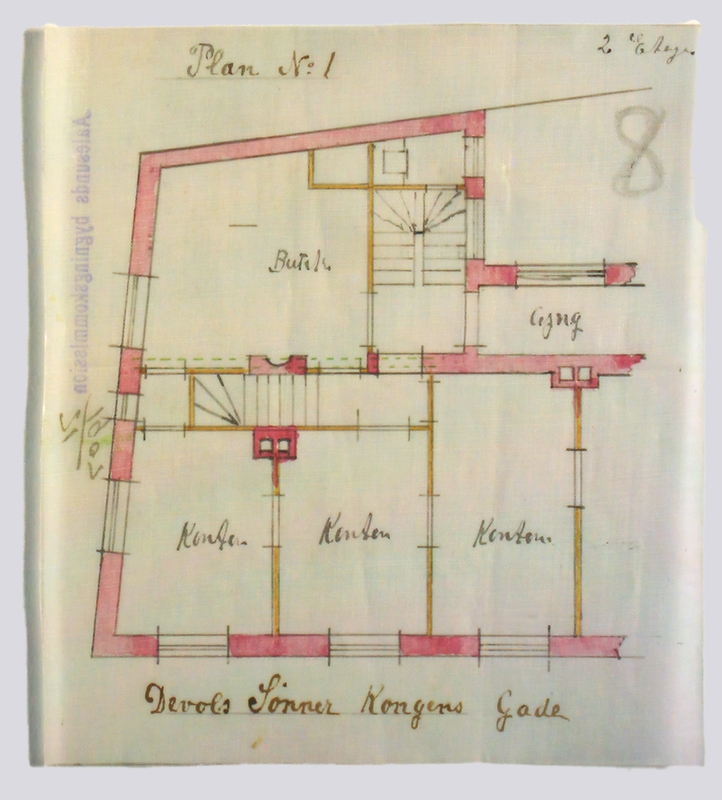 Plan No: 1
2 Etage.
8
Butik
Gang
Kontor
Kontor
Kontor
Devols Sønner Kongens Gade
Aalesunds bygningskommission